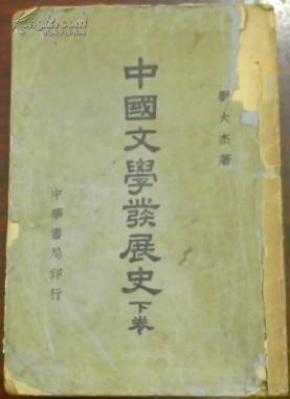 劉大杰著
中國文學發展史下卷
中華書局印行